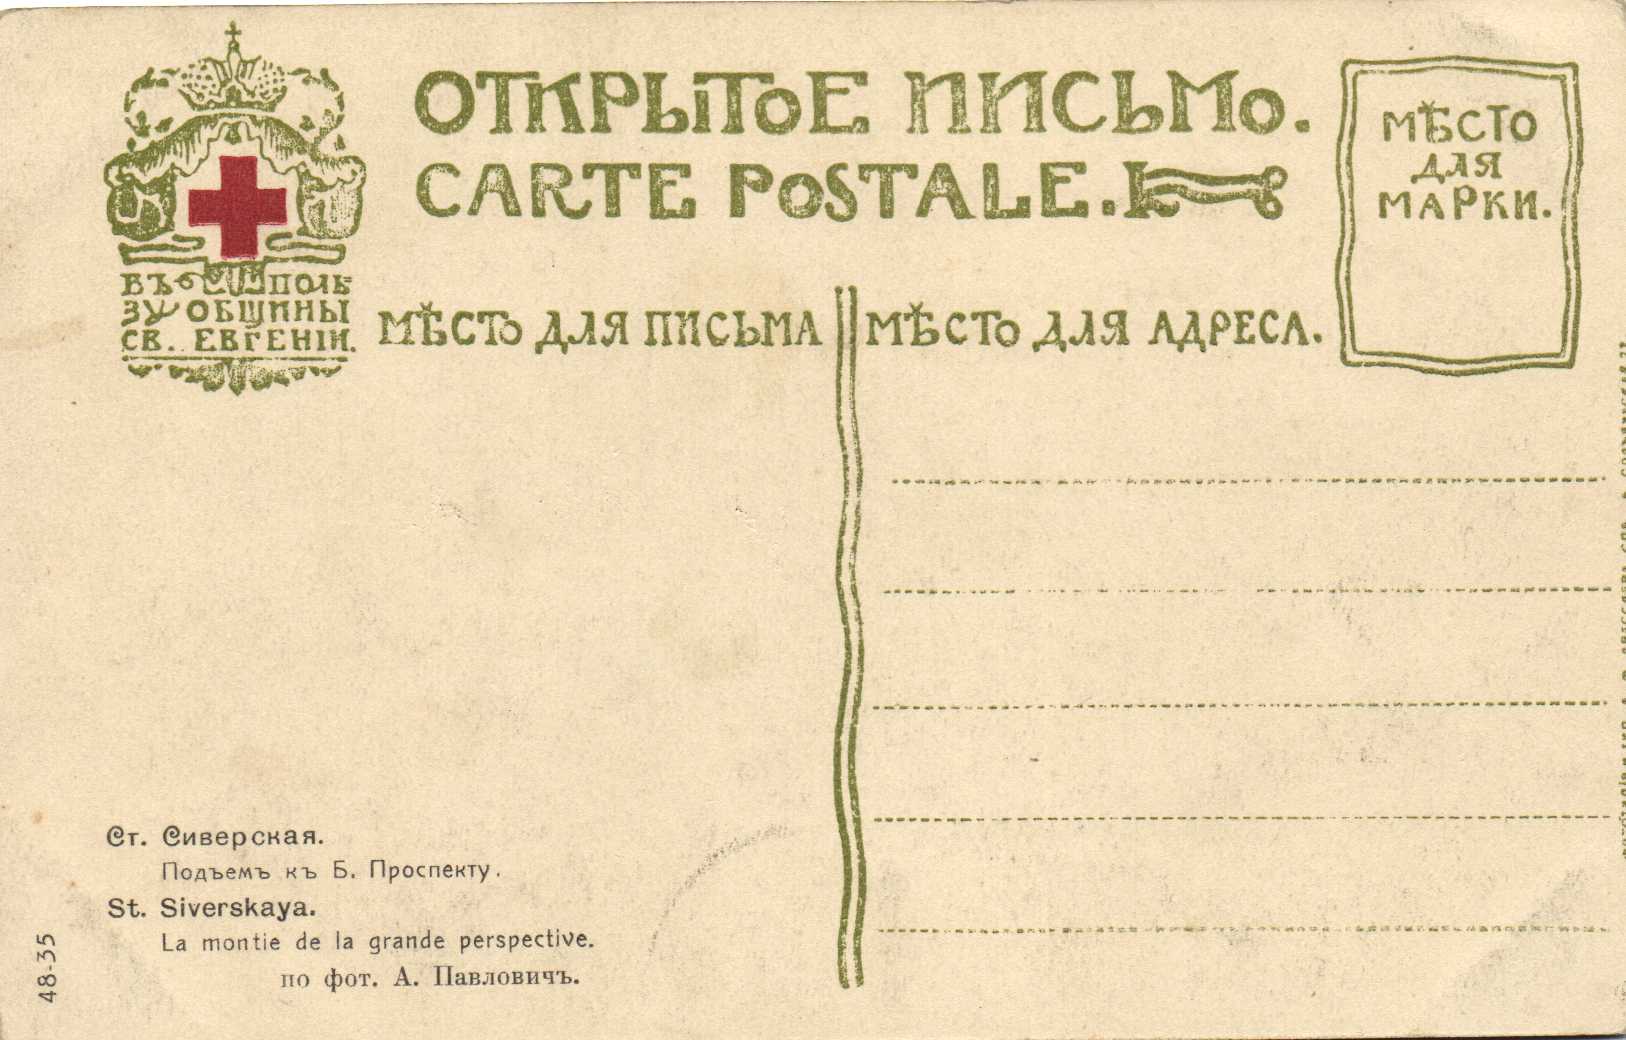 ОТКРЫТОЕ ПИСЬМО.
CARTE POSTALE.
МѢСТО
ДЛЯ
МАРКИ.
ВЪ ПОЛЬ
ЗУ ОБЩИНЫ
СВ. ЕВГЕНІИ.
МѢСТО ДЛЯ ПИСЬМА
МѢСТО ДЛЯ АДРЕСА.
Ст. Сиверская.
Подъемъ къ Б. Проспекту.
St. Siverskaya.
La montie de la grande perspective.
по фот. А. Павловичъ.
48-35